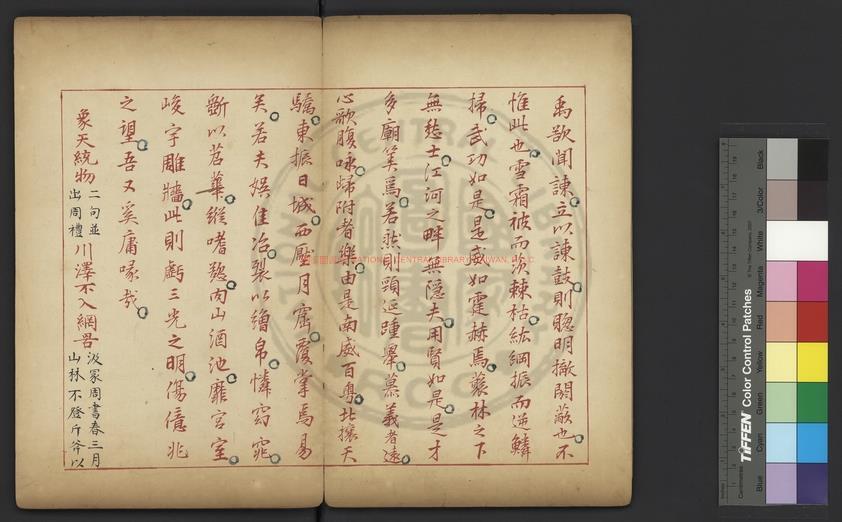 禹欲聞諫立以諫鼓則聰明撤閉蔽也不
惟此也雪霜被而茨棘枯紘綱振而逆鱗
掃武功如是是威如霆赫焉蘘林之下
無愁士江河之畔無隱夫用賢如是是才
多廟筭焉若然則頸延踵舉慕義者遠
心歌腹咏歸附者樂由是南威百粤北攘天
驕東振日城西壓月窟覆掌焉易
矣若夫娯佳冶裂以繒帛憐窈窕
斮以苕華縱嗜慾肉山酒池靡宮室
峻宇雕牆此則虧三光之明傷億兆
之望吾又奚庸喙哉
象天統物
二句並
出周禮
川澤不入網罟
汲冢周書春三月
山林不登斤斧以
NATIONAL CENTRAL LIBRARY, TAIWAN, R.O.C
TIFFEN Color Control Patches
© The Tiffen Company, 2007
Centimetres
Blue
Cyan
Green
Yellow
Red
Magenta
White
3/Color
Black